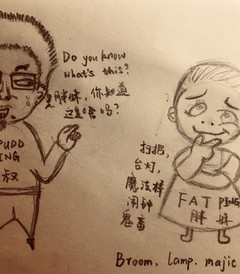 Do you know
what's this?
胖妹,你知道
这是啥吗?
PUDD
ING
叔
扫把,
台灯,
魔法棒
闹钟
FAT PING
胖妹
Broom, lamp, majic